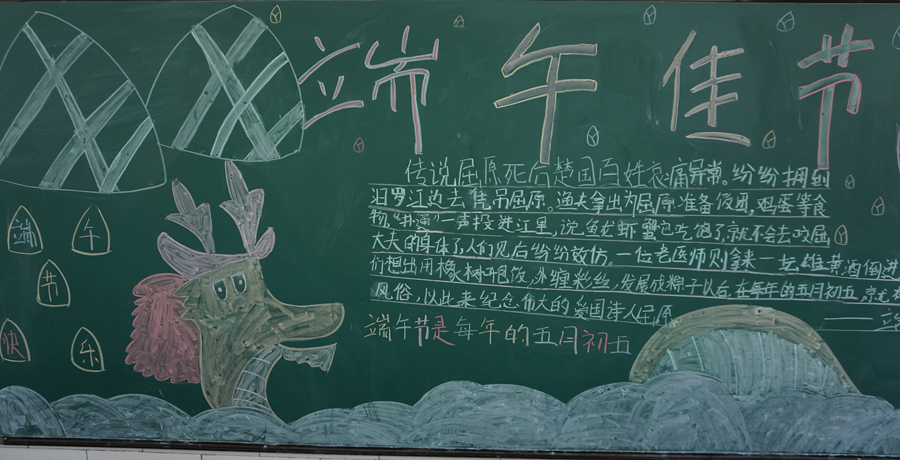 端午佳节
传说屈原死后楚国百姓哀痛异常。纷纷拥到
汨罗江边去凭吊屈原。渔夫拿出为屈原准备饭团,鸡蛋等食
物,"扑通"一声投进江里,说鱼龙虾蟹包吃饱了就不会去咬屈
大夫的身体了人们见后纷纷效仿。一位老医师则拿来一坛雄黄酒倒进
们想出用橡树叶包饭,外缠彩丝,发展成粽子以后,在每年的五月初五
风俗,以此来纪念伟大的爱国诗人屈原
端午节是每年的五月初五
端午
节
快乐